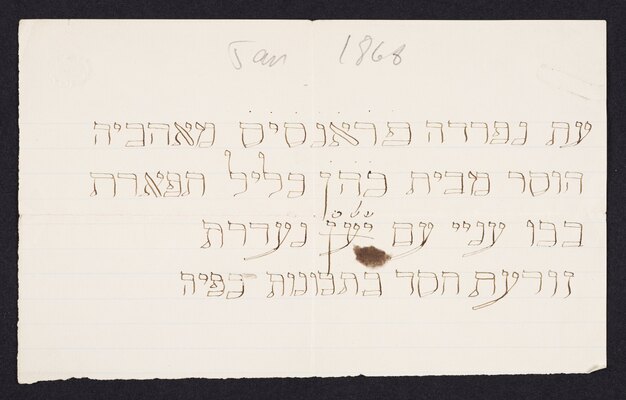 Jan 1868
עת נפרדה פראנסיס מאהביה
הוסר מבית כהן כליל תפארת
בכו עניי עם יען נעדרת
זורעת חסד בתבונות כפיה